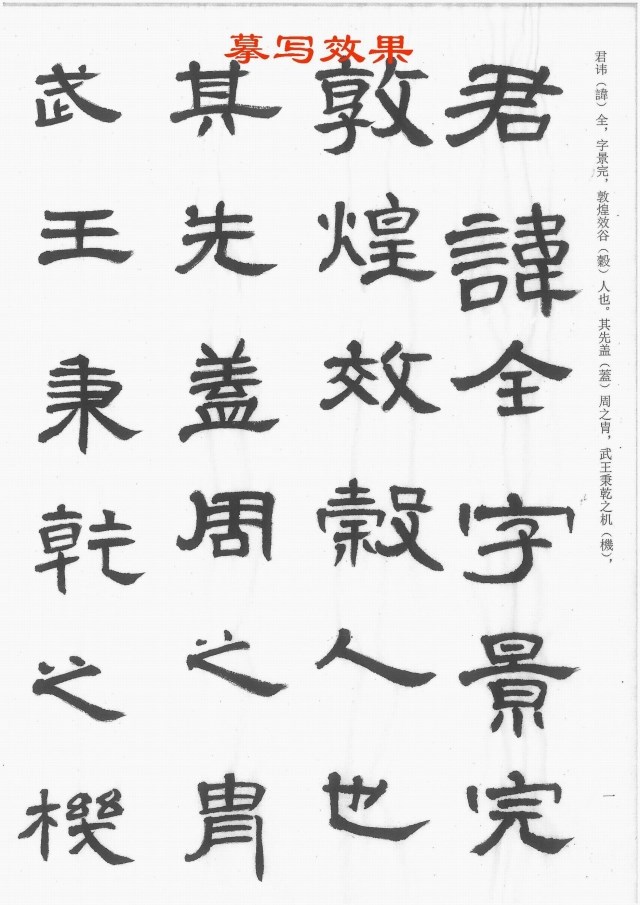 摹写效果
君讳（諱）全，字景完，敦煌效谷（穀）人也。其先盖（蓋）周之胄，武王秉乾之机（機），
君諱全字景完
敦煌效穀人也
其先盖周之胄
武王秉乾之機
一